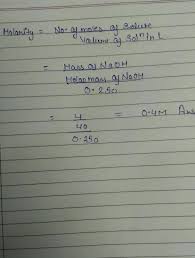 Molarity = No. of moles of Solute
Volume of Solⁿ in L
= Mass of NaOH
Molar mass of NaOH
0.250
= 4 = 0.4M Ans
40
0.250